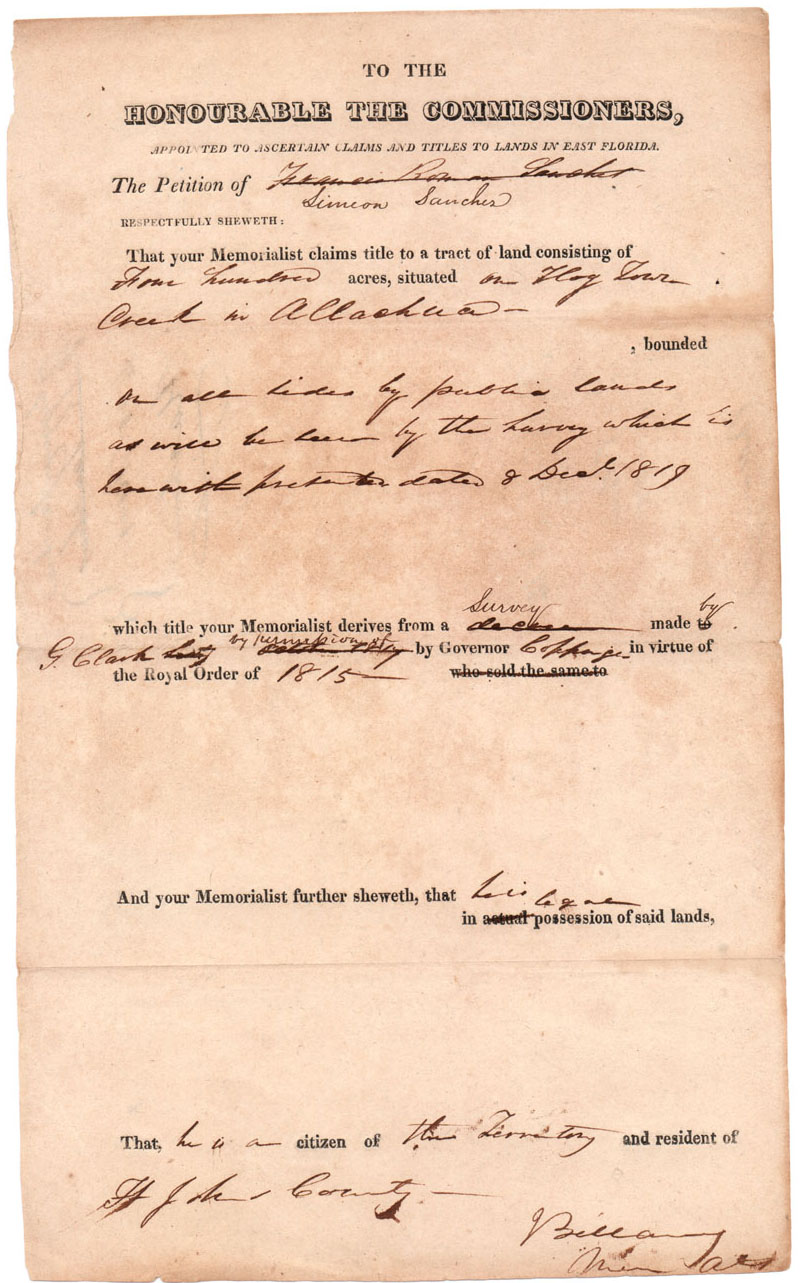 TO THE
HONOURABLE THE COMMISSIONERS,
APPOINTED TO ASCERTAIN CLAIMS AND TITLES TO LANDS IN EAST FLORIDA.
The Petition of Francis Roman Sanchez
Simeon Sanchez
RESPECTFULLY SHEWETH:
That your Memorialist claims title to a tract of land consisting of
Four hundred acres, situated on Hog Town
Creek in Allachua —
, bounded
on all sides by public lands
as will be seen by the survey which is
herewith presented dated 8 Decr. 1819
Survey by
which title your Memorialist derives from a made to
by permission of
G. Clark by Governor Coppinger in virtue of
the Royal Order of 1815 — who sold the same to
his
And your Memorialist further sheweth, that
legal
in actual possession of said lands,
That, he is a citizen of this Territory and resident of
St Johns County —